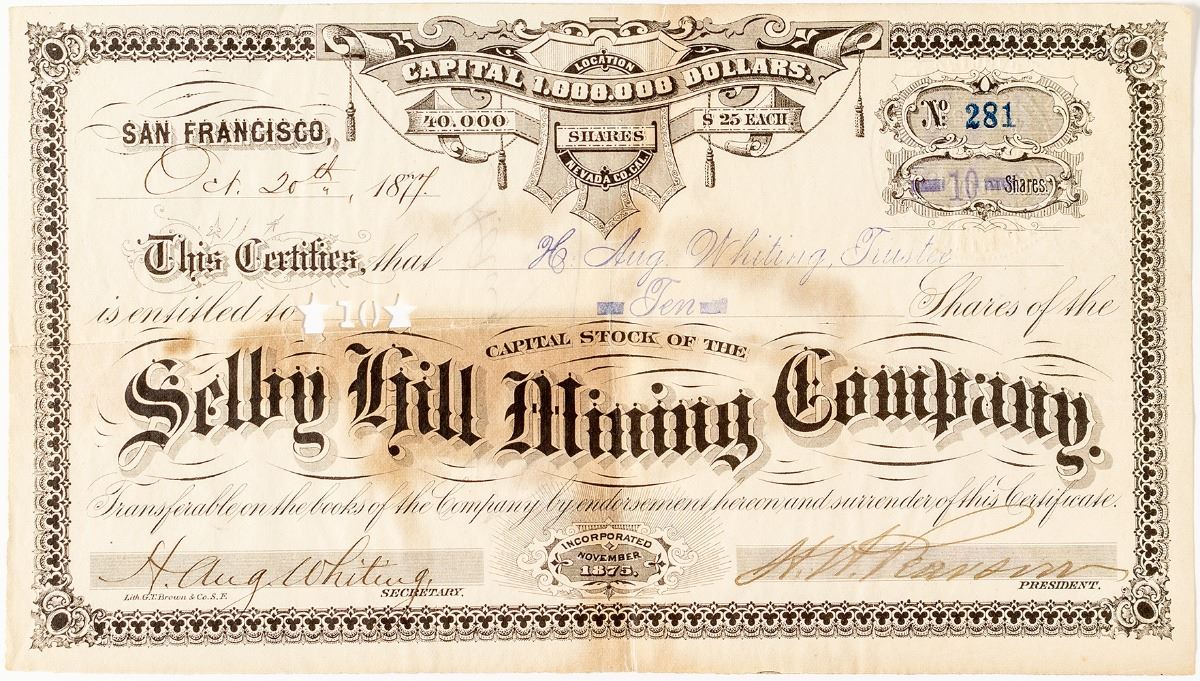 LOCATION
CAPITAL 1.000.000 DOLLARS.
40.000 SHARES $ 25 EACH
NEVADA CO. CAL.
No 281
10 Shares.
SAN FRANCISCO,
Oct. 20th, 1877.
This Certifies, that H. Aug. Whiting, Trustee
is entitled to ★10★ Ten Shares of the
CAPITAL STOCK OF THE
Selby Hill Mining Company.
Transferable on the books of the Company by endorsement hereon and surrender of this Certificate.
INCORPORATED
NOVEMBER
1875.
H. Aug. Whiting,
SECRETARY.
PRESIDENT.
Lith. G.T. Brown & Co. S.F.